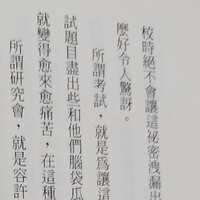 校時絕不會讓這祕密洩漏出
麼好令人驚訝。
所謂考試，就是為讓這
試題目盡出些和他們腦袋瓜
就變得愈來愈痛苦，在這種
所謂研究會，就是容許